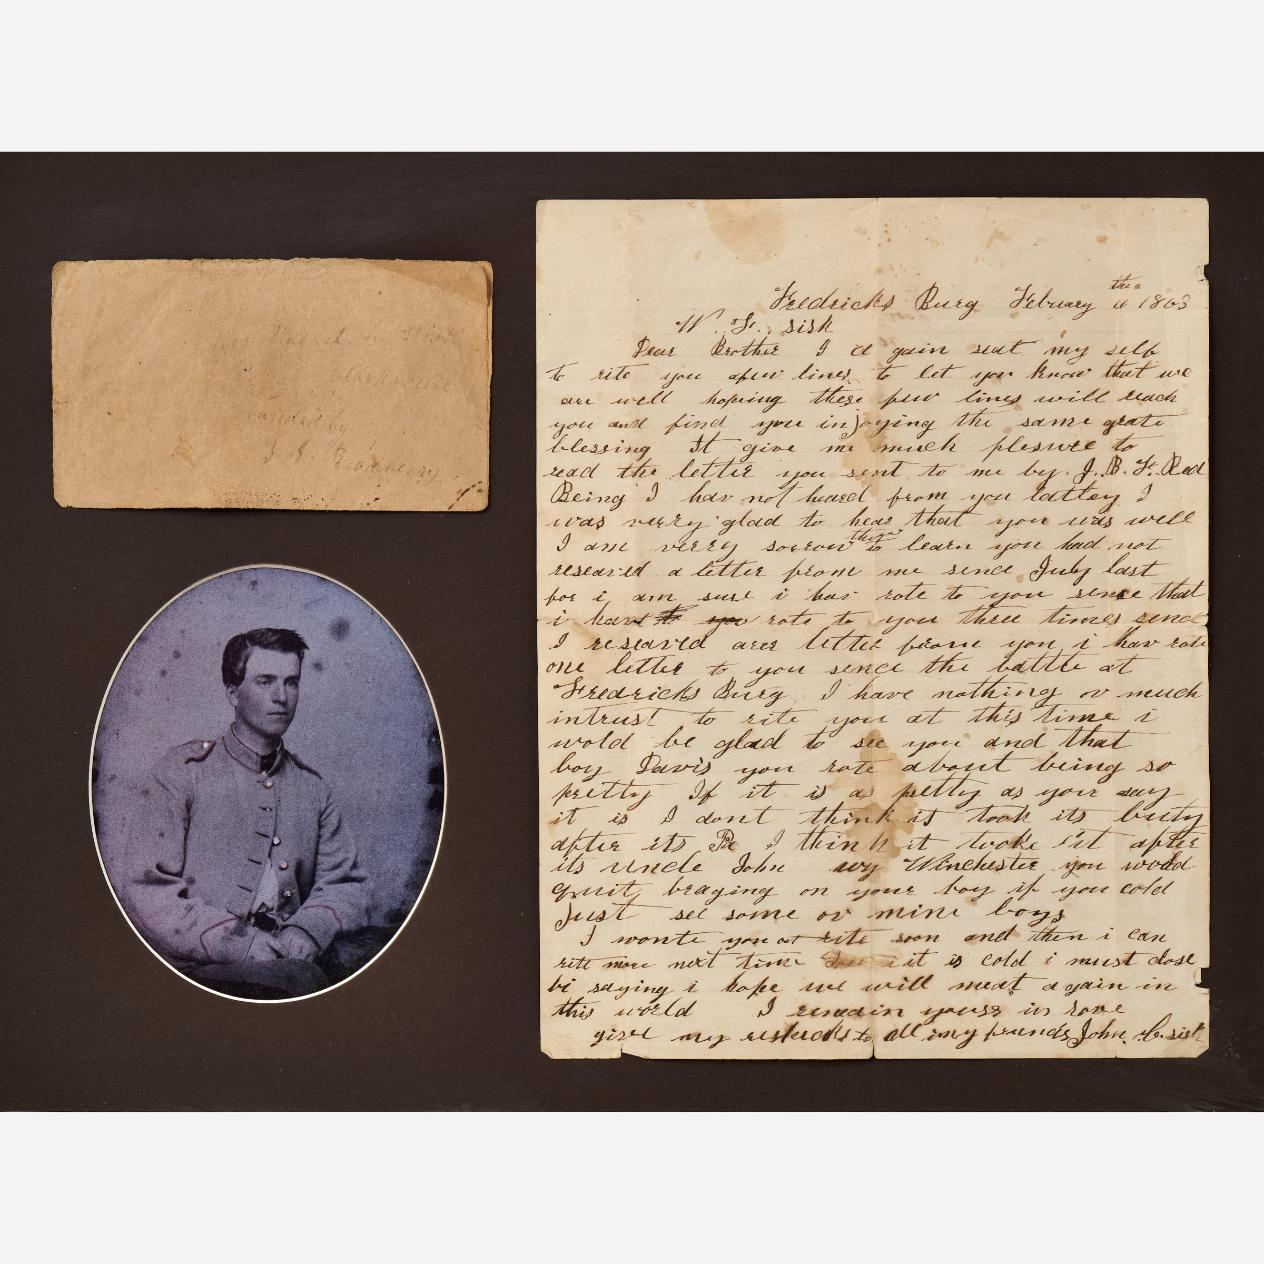 handed by
Fredricks Burg Febuary the 11 1863
W. F. sisk
Dear Brother I a gain seat my self
to rite you afew lines to let you know that we
are well hopeing these few lines will reach
you and find you injoying the same grate
blessing It give me much plesure to
read the letter you sent to me by J. B. F. Red
Being I hav not heard from you lattey I
was verry glad to hear that you was well
I am verry sorrow to learn you had not
reseaved a letter from me sence July last
for i am sure i hav rote to you sence that
i have rote to you three times senc
I reseaved a letter from you i hav rote
one letter to you sence the battle at
Fredricks Burg I have nothing ov much
intrust to rite you at this time i
wold be glad to see you and that
boy Davis you rote about being so
pretty If it is as pretty as your say
it is I dont think it took its buty
after its Pa I think it tooke it after
its uncle John Winchester you wodd
quit braging on your boy if you cold
Just see some ov mine boys
I wonte you at rite soon and then i can
rite more next time it is cold i must close
bi saying i hope we will meat again in
this world I remain yours in love
give my respects to all my friends John C. sisk